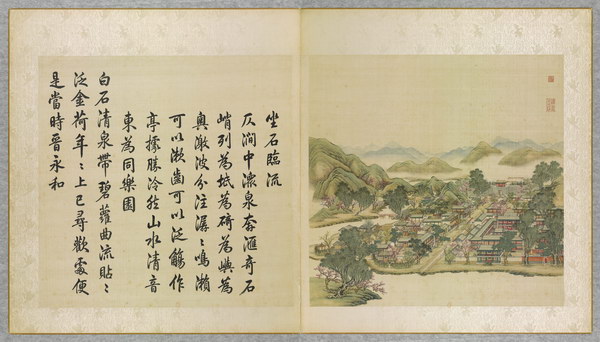 坐石臨流
仄澗中瀠泉奔滙奇石
峭列為坻為碕為嶼為
奧激波分注潺〻鳴瀨
可以漱齒可以泛觴作
亭據勝泠然山水清音
東為同樂園
白石清泉帶碧蘿曲流貼〻
泛金荷年〻上巳尋歡處便
是當時晉永和